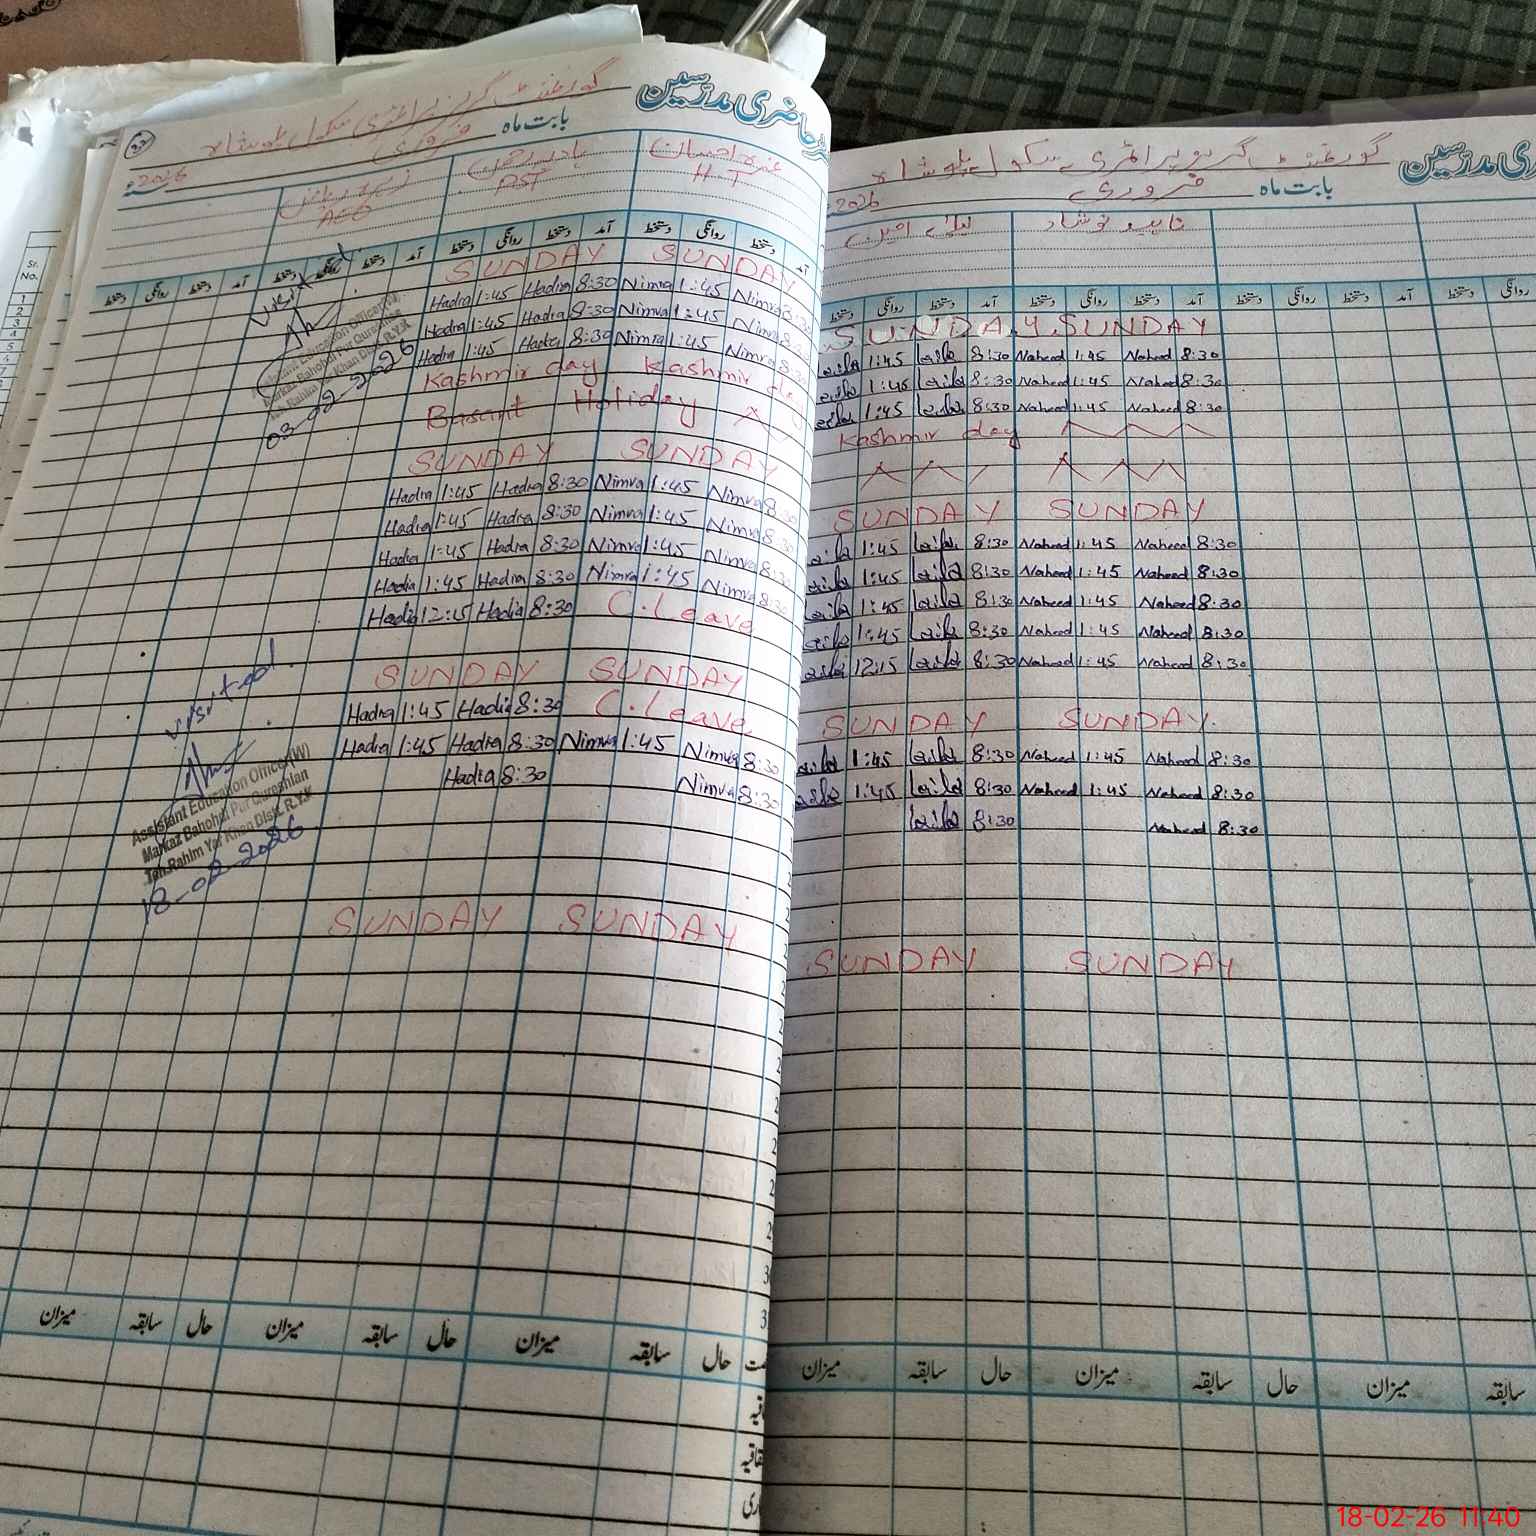 گورنمنٹ گرلز پرائمری سکول پلوشاہ
حاضری مدرسین
بابت ماہ فروری
2026
H.T
PST
روانگی دستخط آمد دستخط روانگی دستخط آمد
دستخط روانگی دستخط آمد
SUNDAY SUNDAY
Hadia 1:45 Hadia 8:30 Nimra 1:45 Nimra 8:30
Hadia 1:45 Hadia 8:30 Nimra 1:45 Nimra 8:30
Hadia 1:45 Hadia 8:30 Nimra 1:45 Nimra 8:30
Kashmir day Kashmir
Basant Holiday
SUNDAY SUNDAY
Hadia 1:45 Hadia 8:30 Nimra 1:45 Nimra 8:30
Hadia 1:45 Hadia 8:30 Nimra 1:45 Nimra 8:30
Hadia 1:45 Hadia 8:30 Nimra 1:45 Nimra 8:30
Hadia 1:45 Hadia 8:30 Nimra 1:45 Nimra 8:30
Hadia 12:15 Hadia 8:30 C.Leave
SUNDAY SUNDAY
Hadia 1:45 Hadia 8:30 C.Leave
Hadia 1:45 Hadia 8:30 Nimra 1:45 Nimra 8:30
Hadia 8:30 Nimra 8:30
SUNDAY SUNDAY
visited
Education Officer (W)
Markaz Bahodi Pur Qureshian
Teh. Rahim Yar Khan Distt. R.Y.K
03-02-2026
visited
Assistant Education Officer (W)
Markaz Bahodi Pur Qureshian
Teh. Rahim Yar Khan Distt. R.Y.K
18-02-2026
حال سابقہ میزان حال سابقہ میزان حال سابقہ میزان
Sr.
No.
1
2
3
4
5
گورنمنٹ گرلز پرائمری سکول پلوشاہ
مدرسین
بابت ماہ فروری
2026
ناہید نوشاد
لیلیٰ امین
روانگی دستخط آمد دستخط روانگی دستخط آمد دستخط روانگی دستخط
SUNDAY SUNDAY
Laila 1:45 Laila 8:30 Naheed 1:45 Naheed 8:30
Laila 1:45 Laila 8:30 Naheed 1:45 Naheed 8:30
Laila 1:45 Laila 8:30 Naheed 1:45 Naheed 8:30
Kashmir day
SUNDAY SUNDAY
Laila 1:45 Laila 8:30 Naheed 1:45 Naheed 8:30
Laila 1:45 Laila 8:30 Naheed 1:45 Naheed 8:30
Laila 1:45 Laila 8:30 Naheed 1:45 Naheed 8:30
Laila 1:45 Laila 8:30 Naheed 1:45 Naheed 8:30
Laila 12:15 Laila 8:30 Naheed 1:45 Naheed 8:30
SUNDAY SUNDAY
Laila 1:45 Laila 8:30 Naheed 1:45 Naheed 8:30
Laila 1:45 Laila 8:30 Naheed 1:45 Naheed 8:30
Laila 8:30 Naheed 8:30
SUNDAY SUNDAY
سابقہ میزان حال سابقہ میزان حال سابقہ میزان
18-02-26 11:40